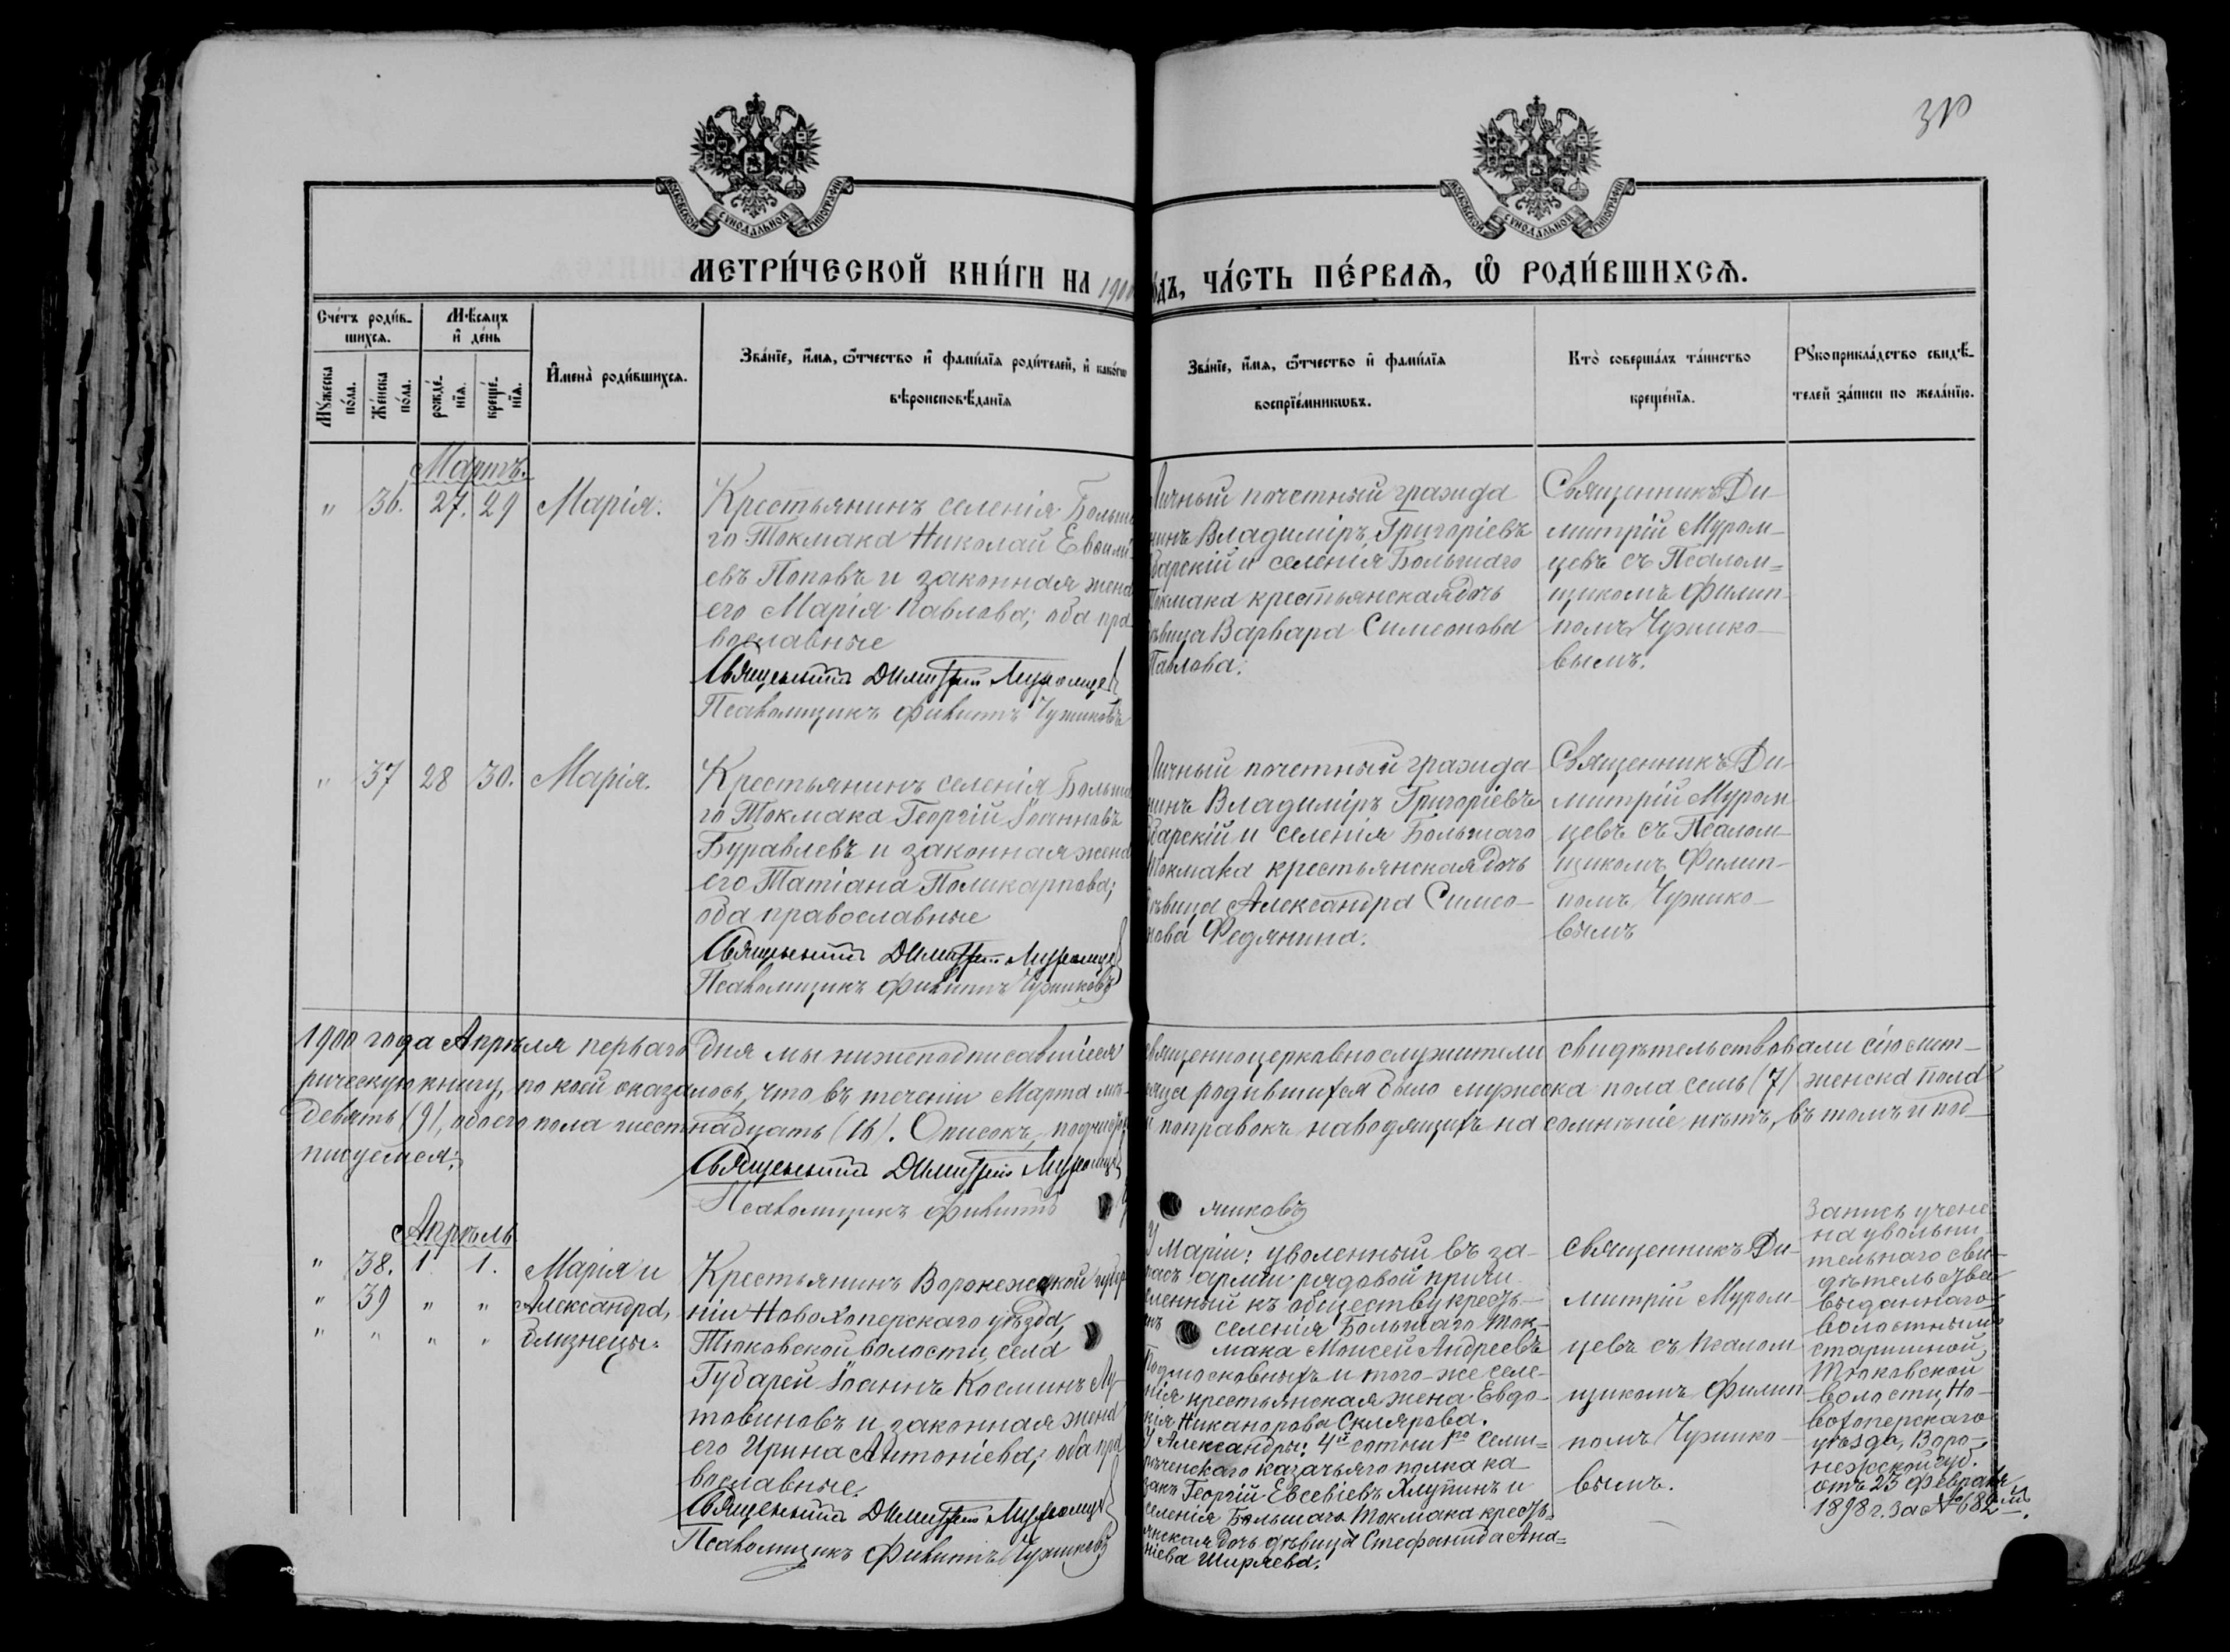 30
МОСКОВСКОЙ СѴНОДАЛЬНОЙ ТИПОГРАФІИ
МОСКОВСКОЙ СѴНОДАЛЬНОЙ ТИПОГРАФІИ
МЕТРИ́ЧЕСКОЙ КНИ́ГИ НА 1900
о́дъ, ЧА́СТЬ ПЕ́РВАѦ, Ѡ҆ РОДИ́ВШИХСѦ.
Сче́тъ роди́в-
шихсѧ.
Мѣ́сѧцъ
и҆ де́нь
Мꙋ́жеска
по́ла.
Же́нска
по́ла.
рожде́-
нїѧ.
креще́-
нїѧ.
И҆мена̀ роди́вшихсѧ.
Зва́нїе, и҆́мѧ, ѻ҆́тчество и҆ фами́лїѧ роди́телей, и҆ како́гѡ
вѣроисповѣ́данїѧ
Зва́нїе, и҆́мѧ, ѻ҆́тчество и҆ фами́лїѧ
воспрїе́мникѡвъ.
Кто̀ соверша́лъ та́инство
креще́нїѧ.
Рꙋкоприкла́дство свидѣ́-
телей за́писи по жела́нїю.
Мартъ.
" 36. 27. 29 Марія.
Крестьянинъ селенія Больша
го Токмака Николай Евѳимі
евъ Поповъ и законная жена
его Марія Павлова; оба пра
вославные
Священникъ Димитрій Муромцев
Псаломщикъ Филиппъ Чужиковъ
Личный почетный гражда
нинъ Владиміръ Григоріевъ
барскій и селенія Большаго
Токмака крестьянская дочь
дѣвица Варвара Симеонова
Павлова.
Священникъ Ди-
митрій Муром-
цевъ съ Псалом-
щикомъ Филип-
помъ Чужико-
вымъ.
" 37 28 30. Марія.
Крестьянинъ селенія Больша
го Токмака Георгій Іоанновъ
Буравлевъ и законная жена
его Татіана Поликарпова;
оба православные
Священникъ Димитрій Муромцев
Псаломщикъ Филиппъ Чужиковъ
Личный почетный гражда-
нинъ Владиміръ Григоріевъ
барскій и селенія Большаго
Токмака крестьянская дочь
дѣвица Александра Симео-
нова Федянина.
Священникъ Ди-
митрій Муром
цевъ съ Псалом-
щикомъ Филип-
помъ Чужико-
вымъ
1900 года Апрѣля перваго дня мы нижеподписавшіеся священноцерковнослужители свидѣтельствовали сію мет-
рическую книгу, по коей оказалось, что въ теченіи Марта мѣ-сяца родившихся было мужеска пола семь (7) женска пола
девять (9), обоего пола шестнадцать (16). Описокъ, подчист и поправокъ наводящихъ на сомнѣніе нѣтъ, въ томъ и под-
писуемся:
Священникъ Димитрій Муромцев
Псаломщикъ Филиппъ Ч жиковъ
Апрѣль
" 38. 1 1. Марія и
" 39 " " Александра,
" " " " близнецы.
Крестьянинъ Воронежской губер
ніи Новохоперскаго уѣзда,
Тюковской волости, села
Губарей Іоаннъ Косминъ Лу-
товиновъ и законная жена
его Ирина Антоніева; оба пра
вославные.
Священникъ Димитрій Муромцев
Псаломщикъ Филиппъ Чужиковъ
У Маріи: уволенный въ за-
пасъ арміи рядовой причи-
сленный къ обществу кресть-
нъ селенія Большаго Ток-
мака Моисей Андреевъ
Подмосковныхъ и того-же селе-
нія крестьянская жена Евдо-
кія Никанорова Склярова.
У Александры: 4й сотни 1го Семи-
рѣченскаго казачьяго полка ка-
закъ Георгій Евсевіевъ Хлупинъ и
селенія Большаго Токмака кресть-
янская дочь дѣвица Стефанида Ана-
ніева Ширяева.
Священникъ Ди-
митрій Муром-
цевъ съ Псалом
щикомъ Филип-
помъ Чужико-
вымъ.
Запись учене-
на увольни
тельнаго сви-
дѣтельства
выданнаго
волостнымъ
старшиной
Тюковской
волости, Но-
вохоперскаго
уѣзда, Воро-
нежской губ.
отъ 23 Февраля
1898 г. за № 682 мъ.